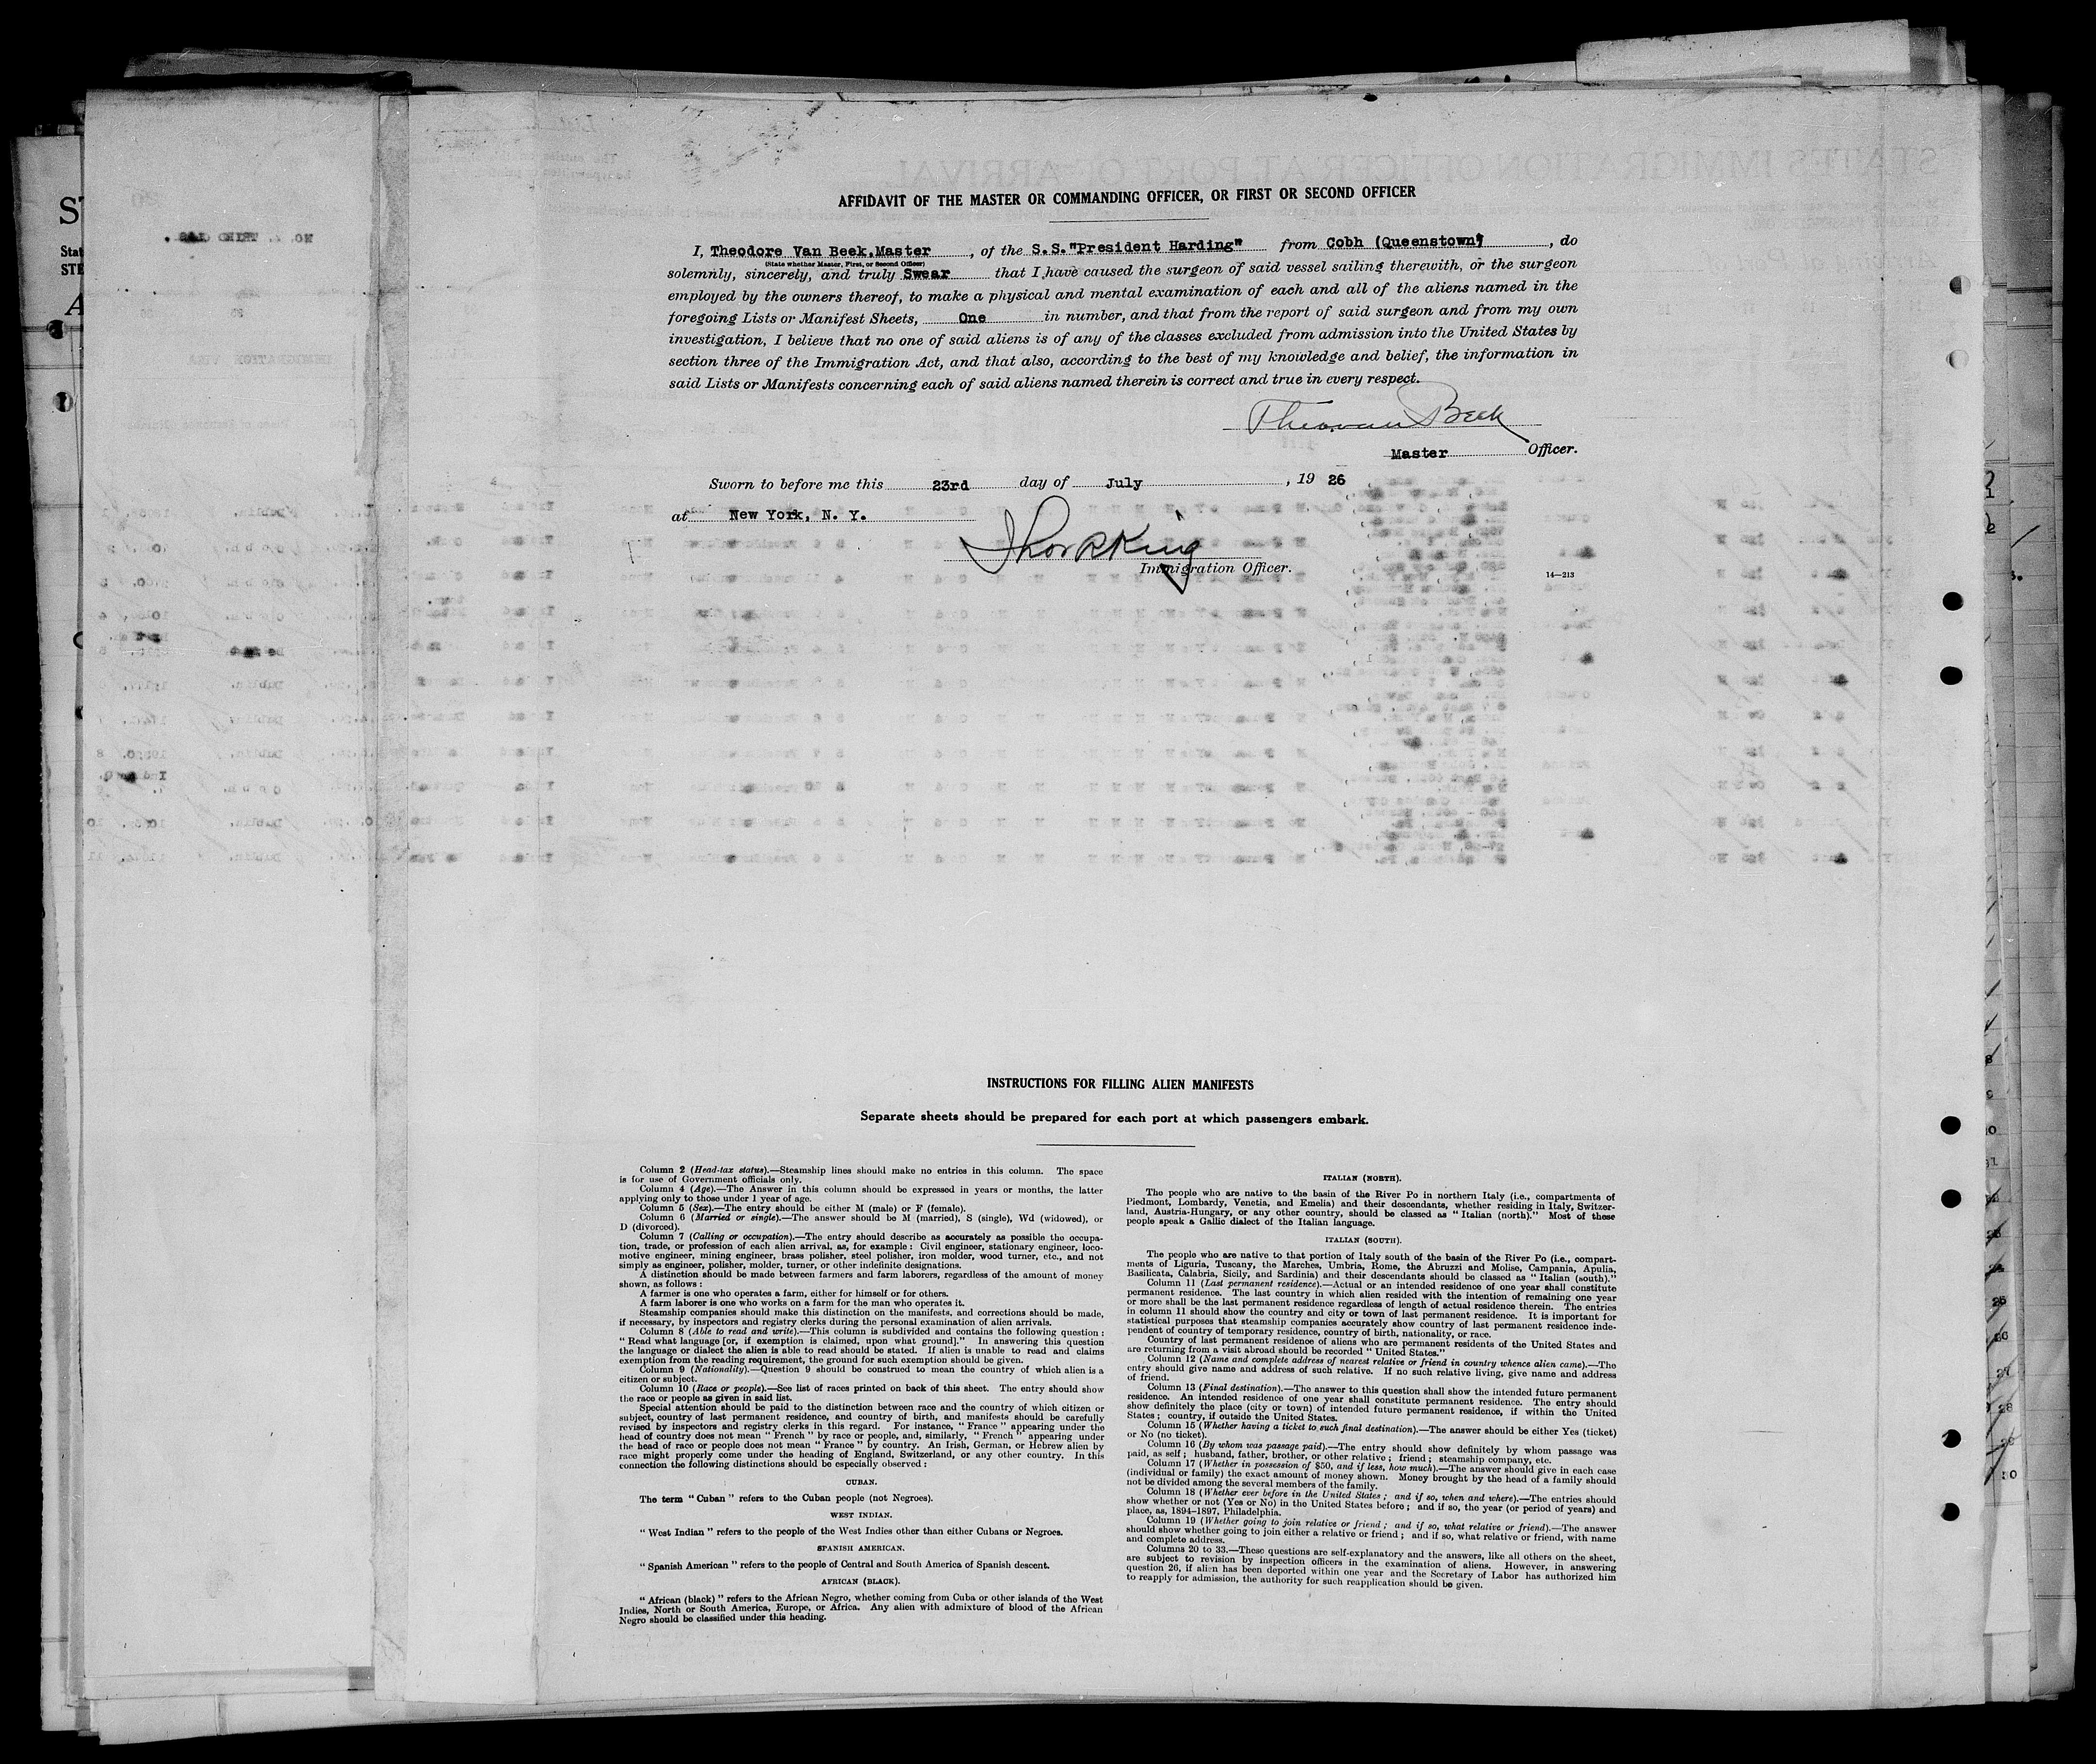 AFFIDAVIT OF THE MASTER OR COMMANDING OFFICER, OR FIRST OR SECOND OFFICER
I, Theodore Van Beek, Master, of the S.S."President Harding" from Cobh (Queenstown), do
(State whether Master, First, or Second Officer)
solemnly, sincerely, and truly Swear that I have caused the surgeon of said vessel sailing therewith, or the surgeon
employed by the owners thereof, to make a physical and mental examination of each and all of the aliens named in the
foregoing Lists or Manifest Sheets, One in number, and that from the report of said surgeon and from my own
investigation, I believe that no one of said aliens is of any of the classes excluded from admission into the United States by
section three of the Immigration Act, and that also, according to the best of my knowledge and belief, the information in
said Lists or Manifests concerning each of said aliens named therein is correct and true in every respect.
Theo van Beek
Master Officer.
Sworn to before me this 23rd day of July, 19 26
at New York, N. Y.
King
Immigration Officer.
14—213
INSTRUCTIONS FOR FILLING ALIEN MANIFESTS
Separate sheets should be prepared for each port at which passengers embark.
Column 2 (Head-tax status).—Steamship lines should make no entries in this column. The space
is for use of Government officials only.
Column 4 (Age).—The Answer in this column should be expressed in years or months, the latter
applying only to those under 1 year of age.
Column 5 (Sex).—The entry should be either M (male) or F (female).
Column 6 (Married or single).—The answer should be M (married), S (single), Wd (widowed), or
D (divorced).
Column 7 (Calling or occupation).—The entry should describe as accurately as possible the occupa-
tion, trade, or profession of each alien arrival, as, for example: Civil engineer, stationary engineer, loco-
motive engineer, mining engineer, brass polisher, steel polisher, iron molder, wood turner, etc., and not
simply as engineer, polisher, molder, turner, or other indefinite designations.
A distinction should be made between farmers and farm laborers, regardless of the amount of money
shown, as follows:
A farmer is one who operates a farm, either for himself or for others.
A farm laborer is one who works on a farm for the man who operates it.
Steamship companies should make this distinction on the manifests, and corrections should be made,
if necessary, by inspectors and registry clerks during the personal examination of alien arrivals.
Column 8 (Able to read and write).—This column is subdivided and contains the following question:
"Read what language [or, if exemption is claimed, upon what ground]." In answering this question
the language or dialect the alien is able to read should be stated. If alien is unable to read and claims
exemption from the reading requirement, the ground for such exemption should be given.
Column 9 (Nationality).—Question 9 should be construed to mean the country of which alien is a
citizen or subject.
Column 10 (Race or people).—See list of races printed on back of this sheet. The entry should show
the race or people as given in said list.
Special attention should be paid to the distinction between race and the country of which citizen or
subject, country of last permanent residence, and country of birth, and manifests should be carefully
revised by inspectors and registry clerks in this regard. For instance, "France" appearing under the
head of country does not mean "French" by race or people, and, similarly, "French" appearing under
the head of race or people does not mean "France" by country. An Irish, German, or Hebrew alien by
race might properly come under the heading of England, Switzerland, or any other country. In this
connection the following distinctions should be especially observed:
CUBAN.
The term "Cuban" refers to the Cuban people (not Negroes).
WEST INDIAN.
"West Indian" refers to the people of the West Indies other than either Cubans or Negroes.
SPANISH AMERICAN.
"Spanish American" refers to the people of Central and South America of Spanish descent.
AFRICAN (BLACK).
"African (black)" refers to the African Negro, whether coming from Cuba or other islands of the West
Indies, North or South America, Europe, or Africa. Any alien with admixture of blood of the African
Negro should be classified under this heading.
ITALIAN (NORTH).
The people who are native to the basin of the River Po in northern Italy (i.e., compartments of
Piedmont, Lombardy, Venetia, and Emelia) and their descendants, whether residing in Italy, Switzer-
land, Austria-Hungary, or any other country, should be classed as "Italian (north)." Most of these
people speak a Gallic dialect of the Italian language.
ITALIAN (SOUTH).
The people who are native to that portion of Italy south of the basin of the River Po (i.e., compart-
ments of Liguria, Tuscany, the Marches, Umbria, Rome, the Abruzzi and Molise, Campania, Apulia,
Basilicata, Calabria, Sicily, and Sardinia) and their descendants should be classed as "Italian (south)."
Column 11 (Last permanent residence).—Actual or an intended residence of one year shall constitute
permanent residence. The last country in which alien resided with the intention of remaining one year
or more shall be the last permanent residence regardless of length of actual residence therein. The entries
in column 11 should show the country and city or town of last permanent residence. It is important for
statistical purposes that steamship companies accurately show country of last permanent residence inde-
pendent of country of temporary residence, country of birth, nationality, or race.
Country of last permanent residence of aliens who are permanent residents of the United States and
are returning from a visit abroad should be recorded "United States."
Column 12 (Name and complete address of nearest relative or friend in country whence alien came).—The
entry should give name and address of such relative. If no such relative living, give name and address
of friend.
Column 13 (Final destination).—The answer to this question shall show the intended future permanent
residence. An intended residence of one year shall constitute permanent residence. The entry should
show definitely the place (city or town) of intended future permanent residence, if within the United
States; country, if outside the United States.
Column 15 (Whether having a ticket to such final destination).—The answer should be either Yes (ticket)
or No (no ticket).
Column 16 (By whom was passage paid).—The entry should show definitely by whom passage was
paid, as self; husband, father, brother, or other relative; friend; steamship company, etc.
Column 17 (Whether in possession of $50, and if less, how much).—The answer should give in each case
(individual or family) the exact amount of money shown. Money brought by the head of a family should
not be divided among the several members of the family.
Column 18 (Whether ever before in the United States; and if so, when and where).—The entries should
show whether or not (Yes or No) in the United States before; and if so, the year (or period of years) and
place, as, 1894–1897, Philadelphia.
Column 19 (Whether going to join relative or friend; and if so, what relative or friend).—The answer
should show whether going to join either a relative or friend; and if so, what relative or friend, with name
and complete address.
Columns 20 to 33.—These questions are self-explanatory and the answers, like all others on the sheet,
are subject to revision by inspection officers in the examination of aliens. However, in answering
question 26, if alien has been deported within one year and the Secretary of Labor has authorized him
to reapply for admission, the authority for such reapplication should be given.